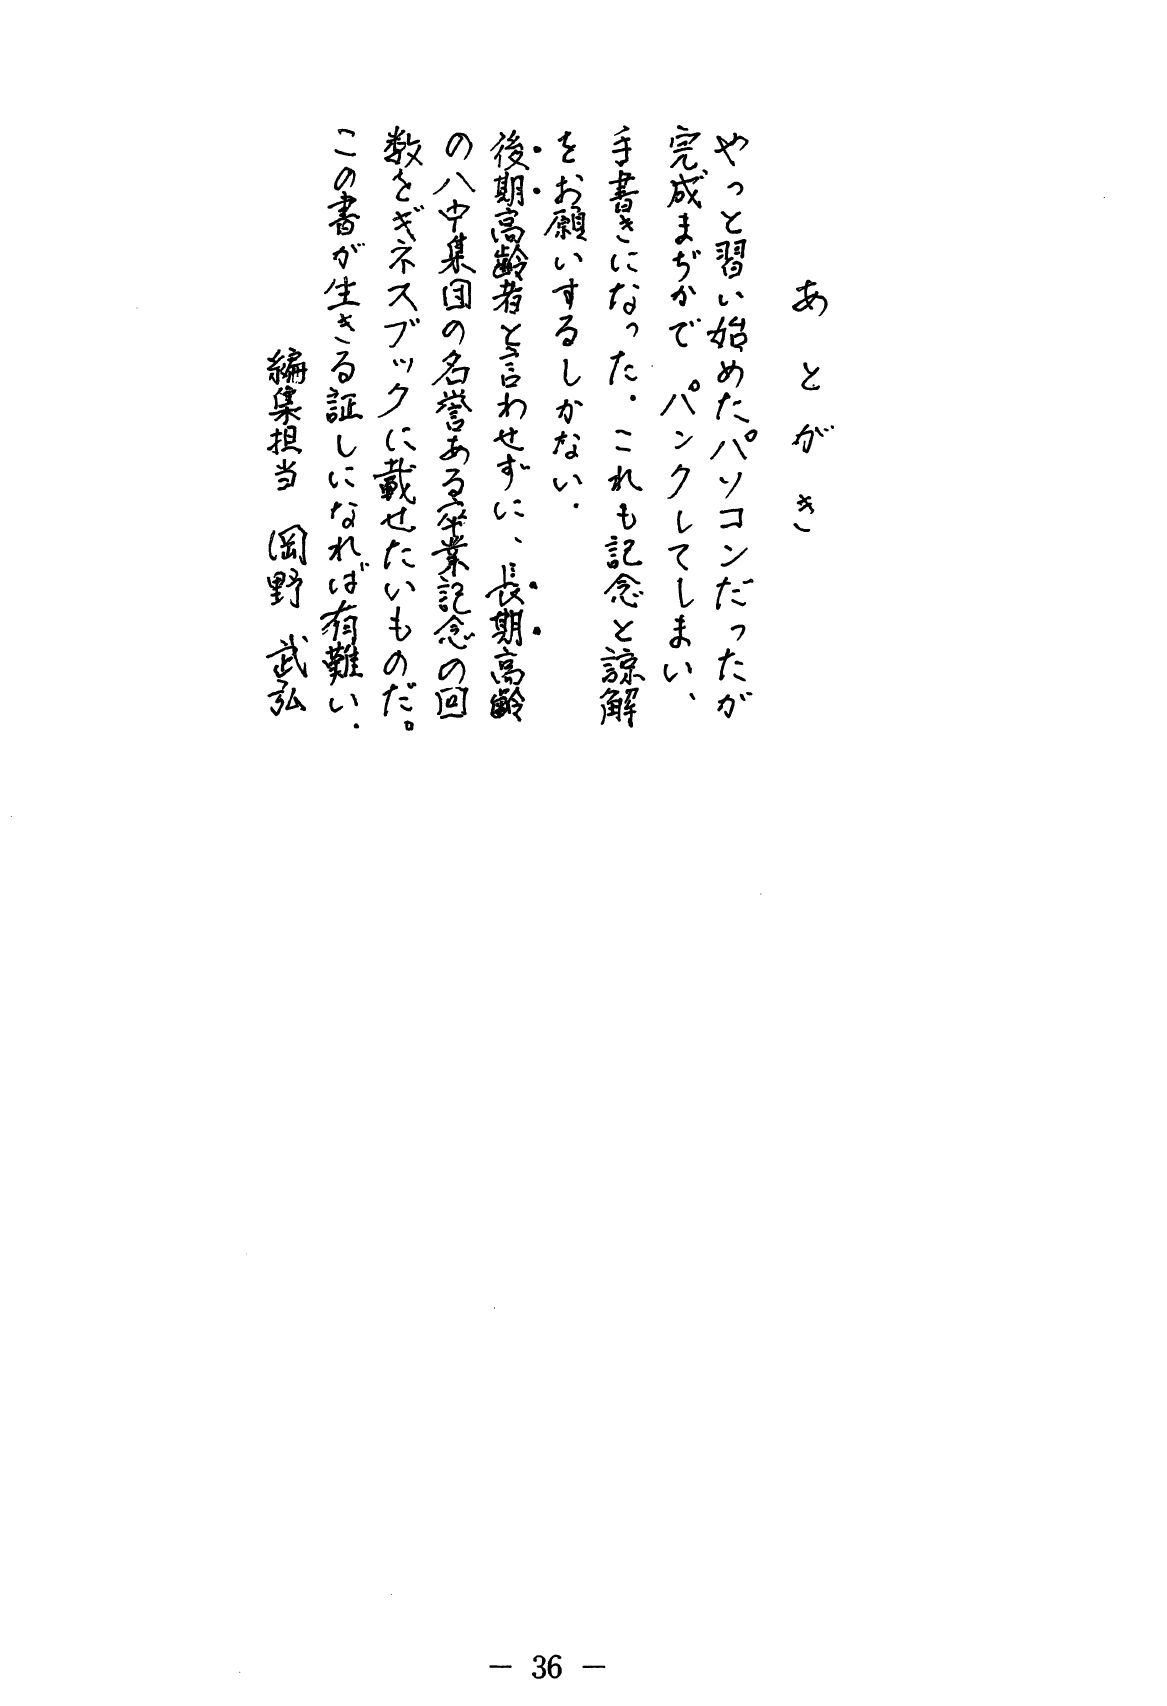 あとがき
やっと習い始めたパソコンだったが
完成まぢかで パンクしてしまい、
手書きになった．これも記念と諒解
をお願いするしかない．
後期高齢者と言わせずに、長期高齢
の八中集団の名誉ある卒業記念の回
数をギネスブックに載せたいものだ。
この書が生きる証しになれば有難い．
編集担当 岡野 武弘
― 36 ―